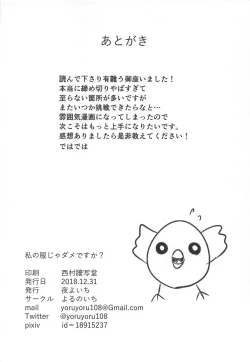 あとがき
読んで下さり有難う御座いました！
本当に締め切りやばすぎて
至らない箇所が多いですが
またいつか挑戦できたらなと…
雰囲気漫画になってしまったので
次こそはもっと上手になりたいです。
感想ありましたら是非教えてください！
ではでは
私の服じゃダメですか？
印刷　西村謄写堂
発行日　2018.12.31
発行　夜よいち
サークル　よるのいち
mail　yoruyoru108@Gmail.com
Twitter　@yoruyoru108
pixiv　id＝18915237